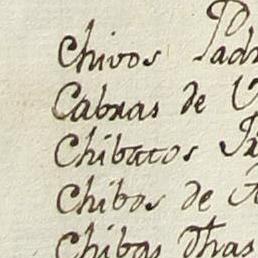 Chivos Padr
Cabras de V
Chibatos
Chibos de A
Chibas dhas